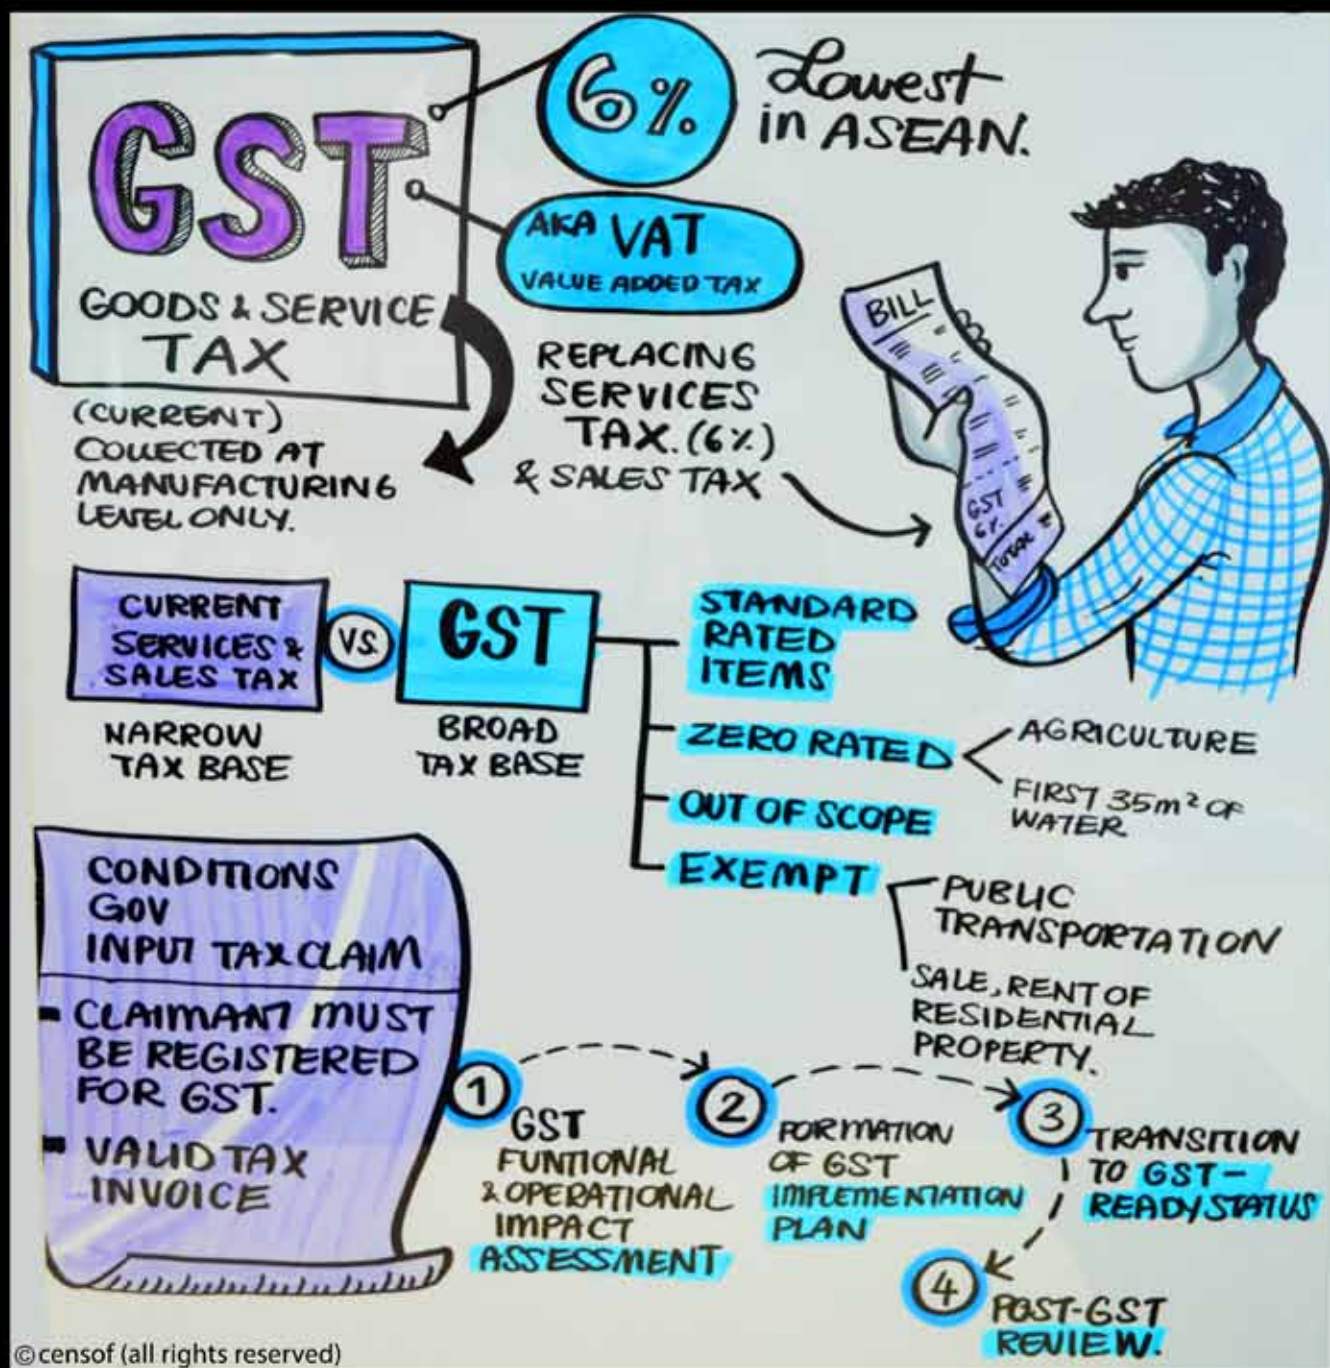 GST
GOODS & SERVICE
TAX
6%
Lowest
in ASEAN.
AKA VAT
VALUE ADDED TAX
REPLACING
SERVICES
TAX. (6%)
& SALES TAX
(CURRENT)
COLLECTED AT
MANUFACTURING
LEVEL ONLY.
BILL
GST
6%
TOTAL
CURRENT
SERVICES &
SALES TAX
VS.
GST
NARROW
TAX BASE
BROAD
TAX BASE
STANDARD
RATED
ITEMS
ZERO RATED
AGRICULTURE
FIRST 35m² OF
WATER
OUT OF SCOPE
EXEMPT
PUBLIC
TRANSPORTATION
SALE, RENT OF
RESIDENTIAL
PROPERTY.
CONDITIONS
GOV
INPUT TAX CLAIM
- CLAIMANT MUST
BE REGISTERED
FOR GST.
- VALID TAX
INVOICE
1
GST
FUNTIONAL
& OPERATIONAL
IMPACT
ASSESSMENT
2
FORMATION
OF GST
IMPLEMENTATION
PLAN
3
TRANSITION
TO GST-
READY STATUS
4
POST-GST
REVIEW.
© censof (all rights reserved)